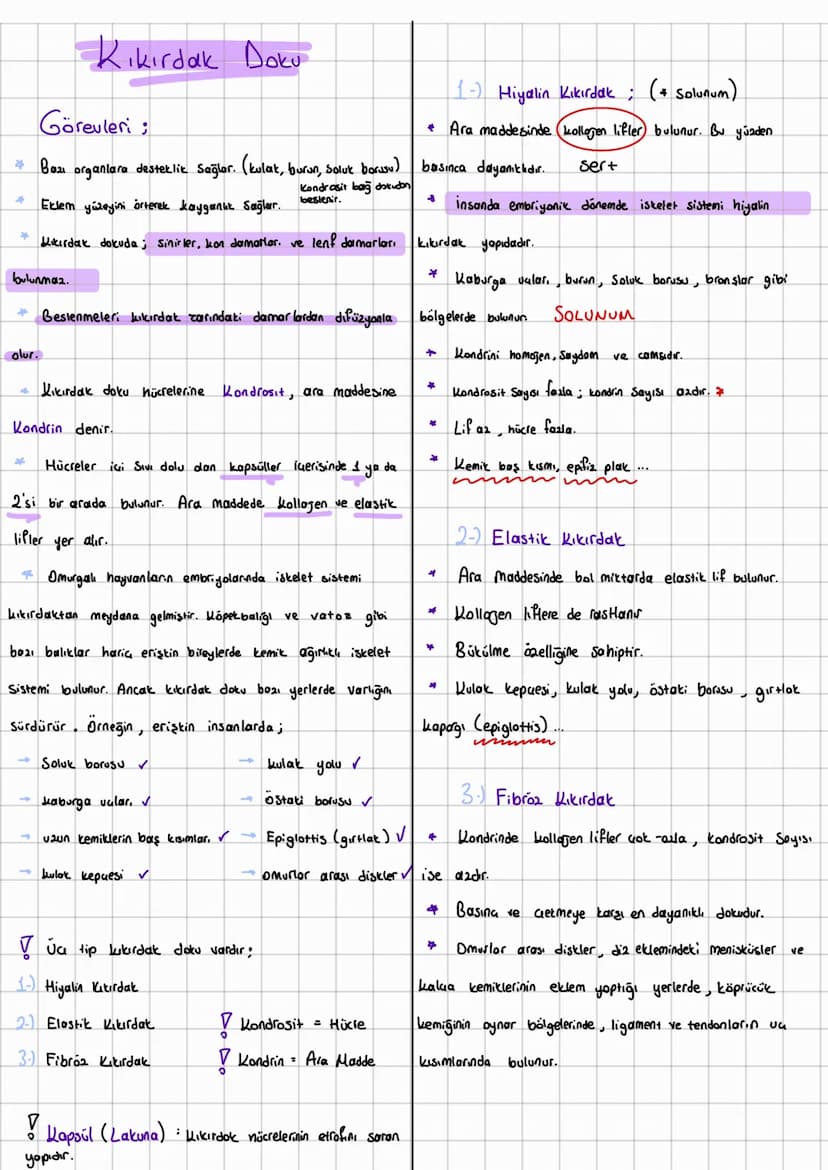 Kıkırdak Doku
Görevleri ;
* Bazı organlara desteklik sağlar. (kulak, burun, soluk borusu)
* Eklem yüzeyini örterek kayganlık sağlar.
Kondrosit bağ dokudan
beslenir.
* Kıkırdak dokuda ; sinirler, kan damarları ve lenf damarları
bulunmaz.
* Beslenmeleri kıkırdak zarındaki damarlardan difüzyonla
olur.
* Kıkırdak doku hücrelerine Kondrosit, ara maddesine
Kondrin denir.
* Hücreler içi sıvı dolu olan kapsüller içerisinde 1 ya da
2'si bir arada bulunur. Ara maddede kollajen ve elastik
lifler yer alır.
* Omurgalı hayvanların embriyolarında iskelet sistemi
kıkırdaktan meydana gelmiştir. Köpekbalığı ve vatoz gibi
bazı balıklar hariç erişkin bireylerde kemik ağırlıklı iskelet
sistemi bulunur. Ancak kıkırdak doku bazı yerlerde varlığını
sürdürür. Örneğin, erişkin insanlarda ;
→ Soluk borusu ✓
→ kaburga uçları ✓
→ uzun kemiklerin baş kısımları ✓
→ kulak kepçesi ✓
→ kulak yolu ✓
→ östaki borusu ✓
→ Epiglottis (gırtlak) ✓
→ omurlar arası diskler ✓
! Üç tip kıkırdak doku vardır ;
1-) Hiyalin Kıkırdak
2-) Elastik Kıkırdak
3-) Fibröz Kıkırdak
! Kondrosit = Hücre
! Kondrin = Ara Madde
! Kapsül (Lakuna) : Kıkırdak hücrelerinin etrafını saran
yapıdır.
1-) Hiyalin Kıkırdak ; (* Solunum)
* Ara maddesinde kollagen lifler bulunur. Bu yüzden
basınca dayanıklıdır. sert
* İnsanda embriyonik dönemde iskelet sistemi hiyalin
kıkırdak yapıdadır.
* Kaburga uçları, burun, Soluk borusu, bronşlar gibi
bölgelerde bulunur. SOLUNUM
* Kondrini homojen, saydam ve camsıdır.
* Kondrosit sayısı fazla ; kondrin sayısı azdır. *
* Lif az, hücre fazla.
* Kemik baş kısmı, epifiz plak ...
2-) Elastik Kıkırdak
* Ara maddesinde bol miktarda elastik lif bulunur.
* Kollagen liflere de rastlanır
* Bükülme özelliğine sahiptir.
* Kulak kepçesi, kulak yolu, östaki borusu, gırtlak
kapağı (epiglottis) ...
3-) Fibröz Kıkırdak
* Kondrinde kollagen lifler çok fazla, kondrosit sayısı
ise azdır.
* Basınç ve çekmeye karşı en dayanıklı dokudur.
* Omurlar arası diskler, diz eklemindeki menisküsler ve
kalça kemiklerinin eklem yaptığı yerlerde, köprücük
kemiğinin oynar bölgelerinde, ligament ve tendonların uç
kısımlarında bulunur.